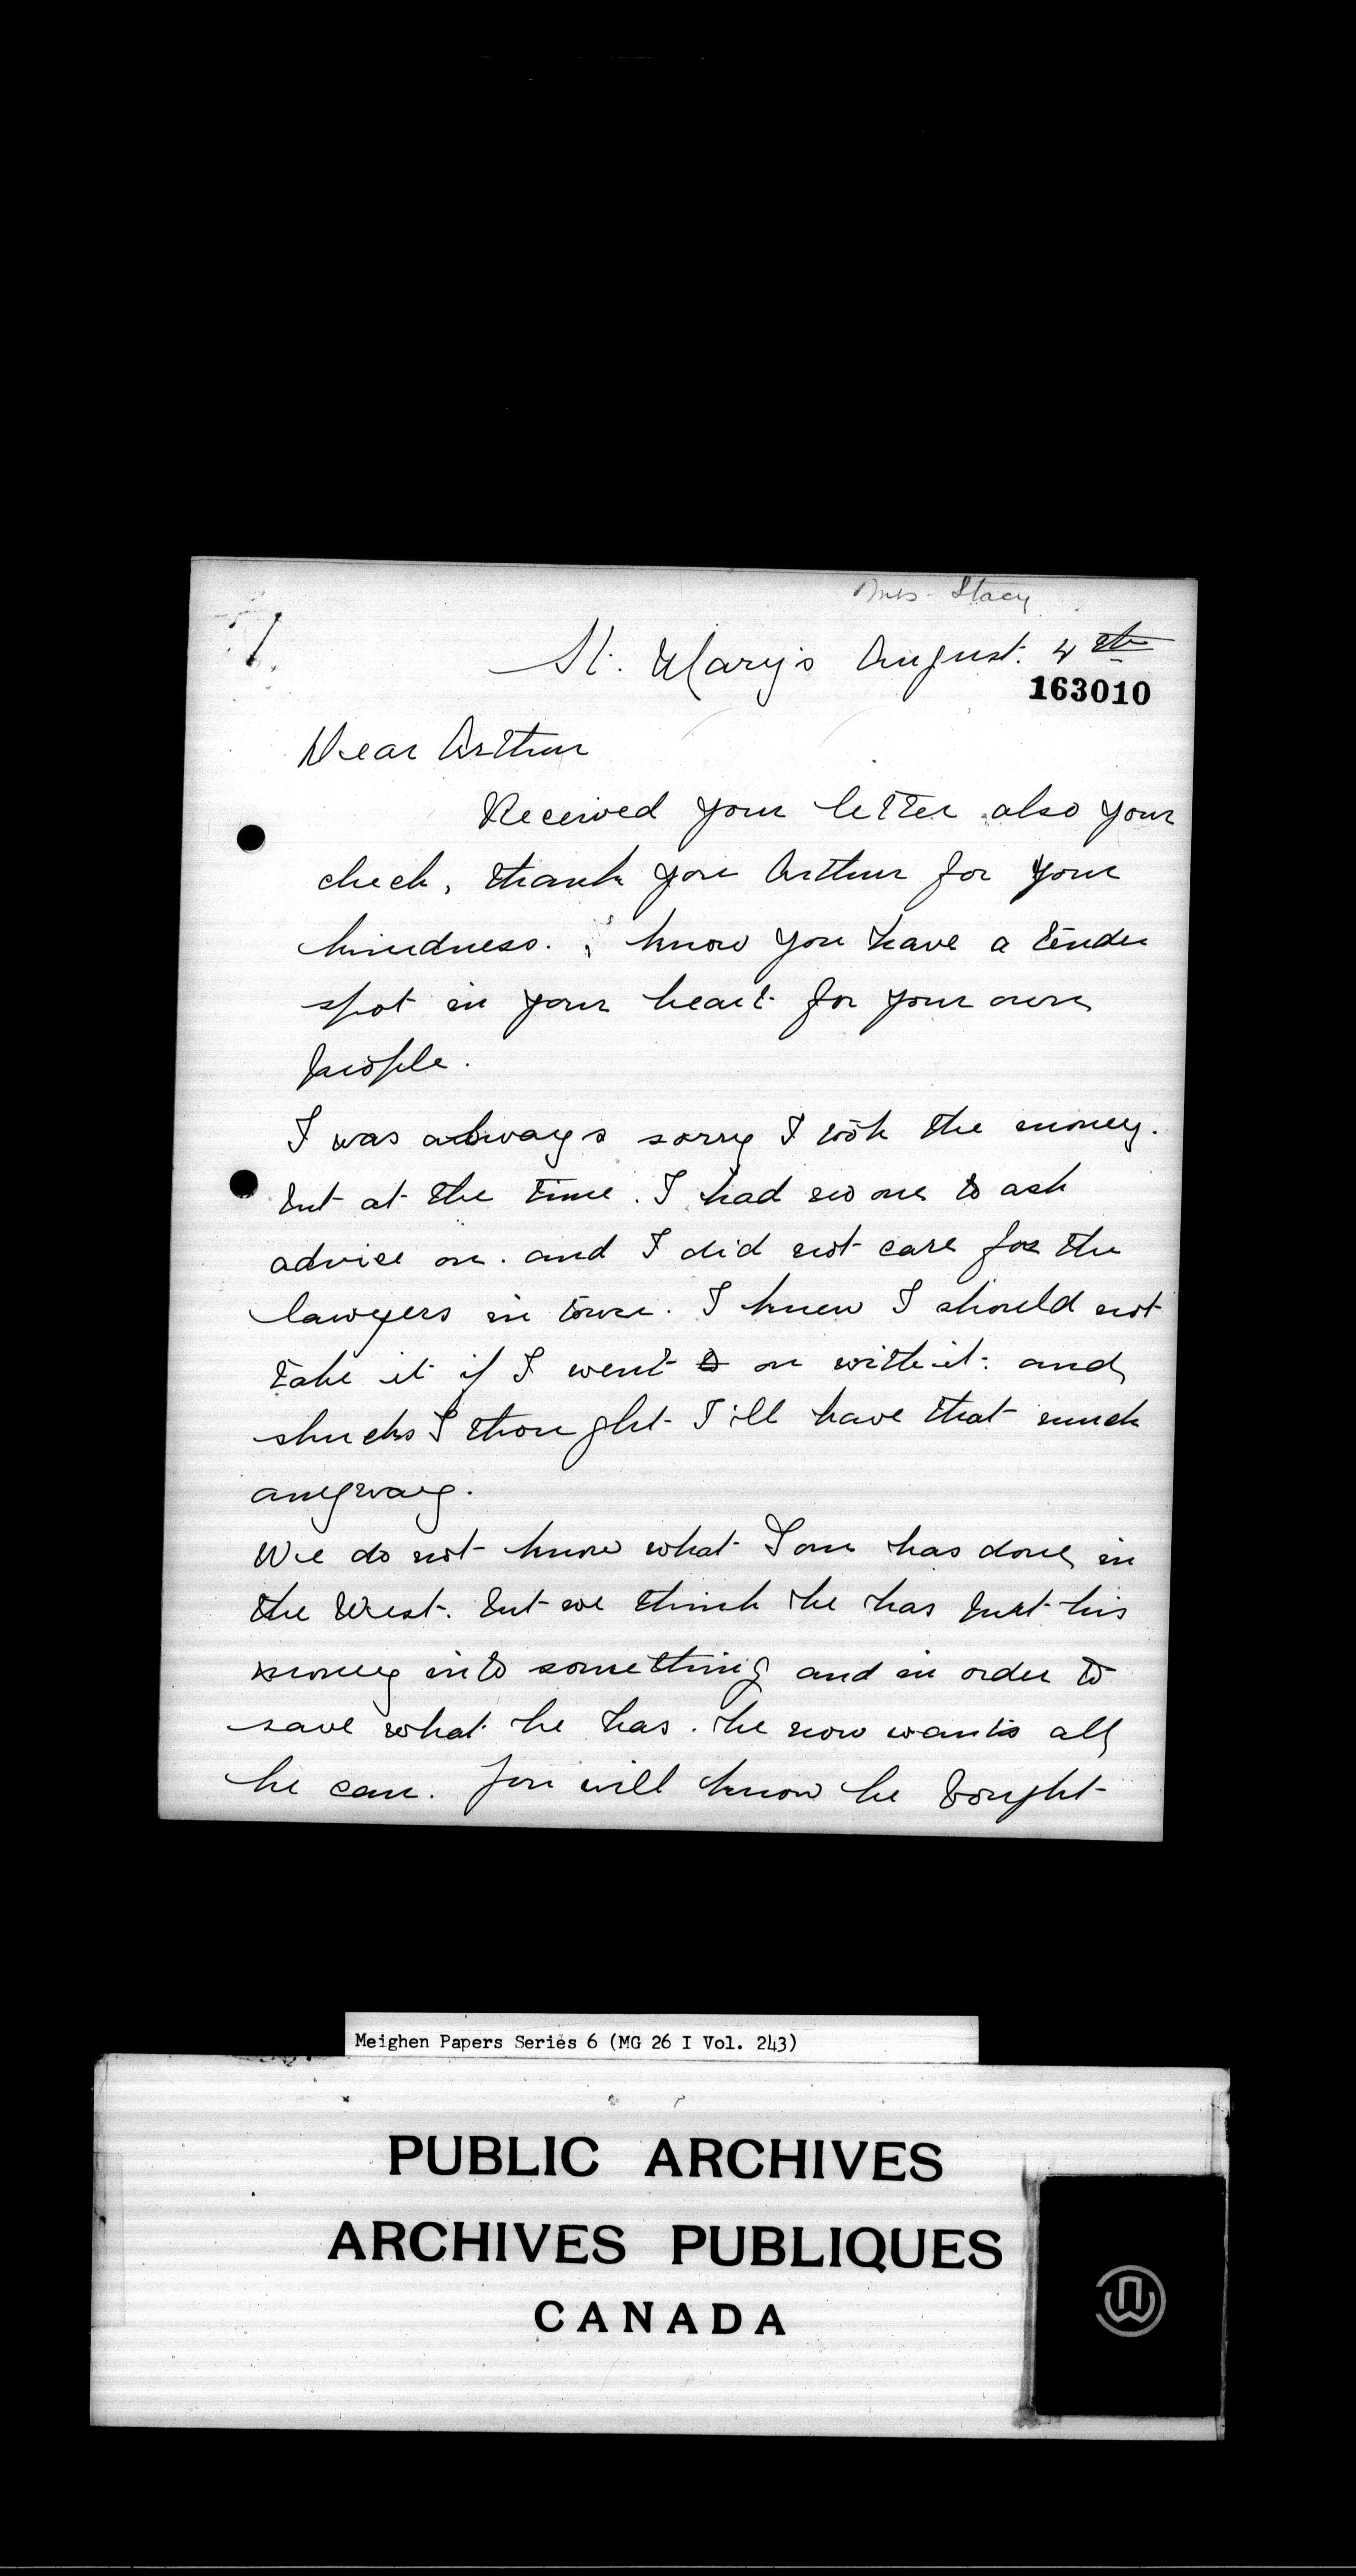 Mrs - Stacy
1
St. Mary's August. 4th
163010
Dear Arthur
Received your letter also your
check, thank you Arthur for your
kindness. I know you have a tender
spot in your heart for your own
people.
I was always sorry I took the money.
but at the time. I had no one to ask
advice on. and I did not care for the
lawyers in town. I knew I should not
take it if I went to on with it. and
shucks I thought I'll have that much
anyway.
We do not know what Tom has done in
the West. but we think he has put his
money into something and in order to
save what he has. he now wants all
he can. You will know he bought
Meighen Papers Series 6 (MG 26 I Vol. 243)
PUBLIC ARCHIVES
ARCHIVES PUBLIQUES
CANADA